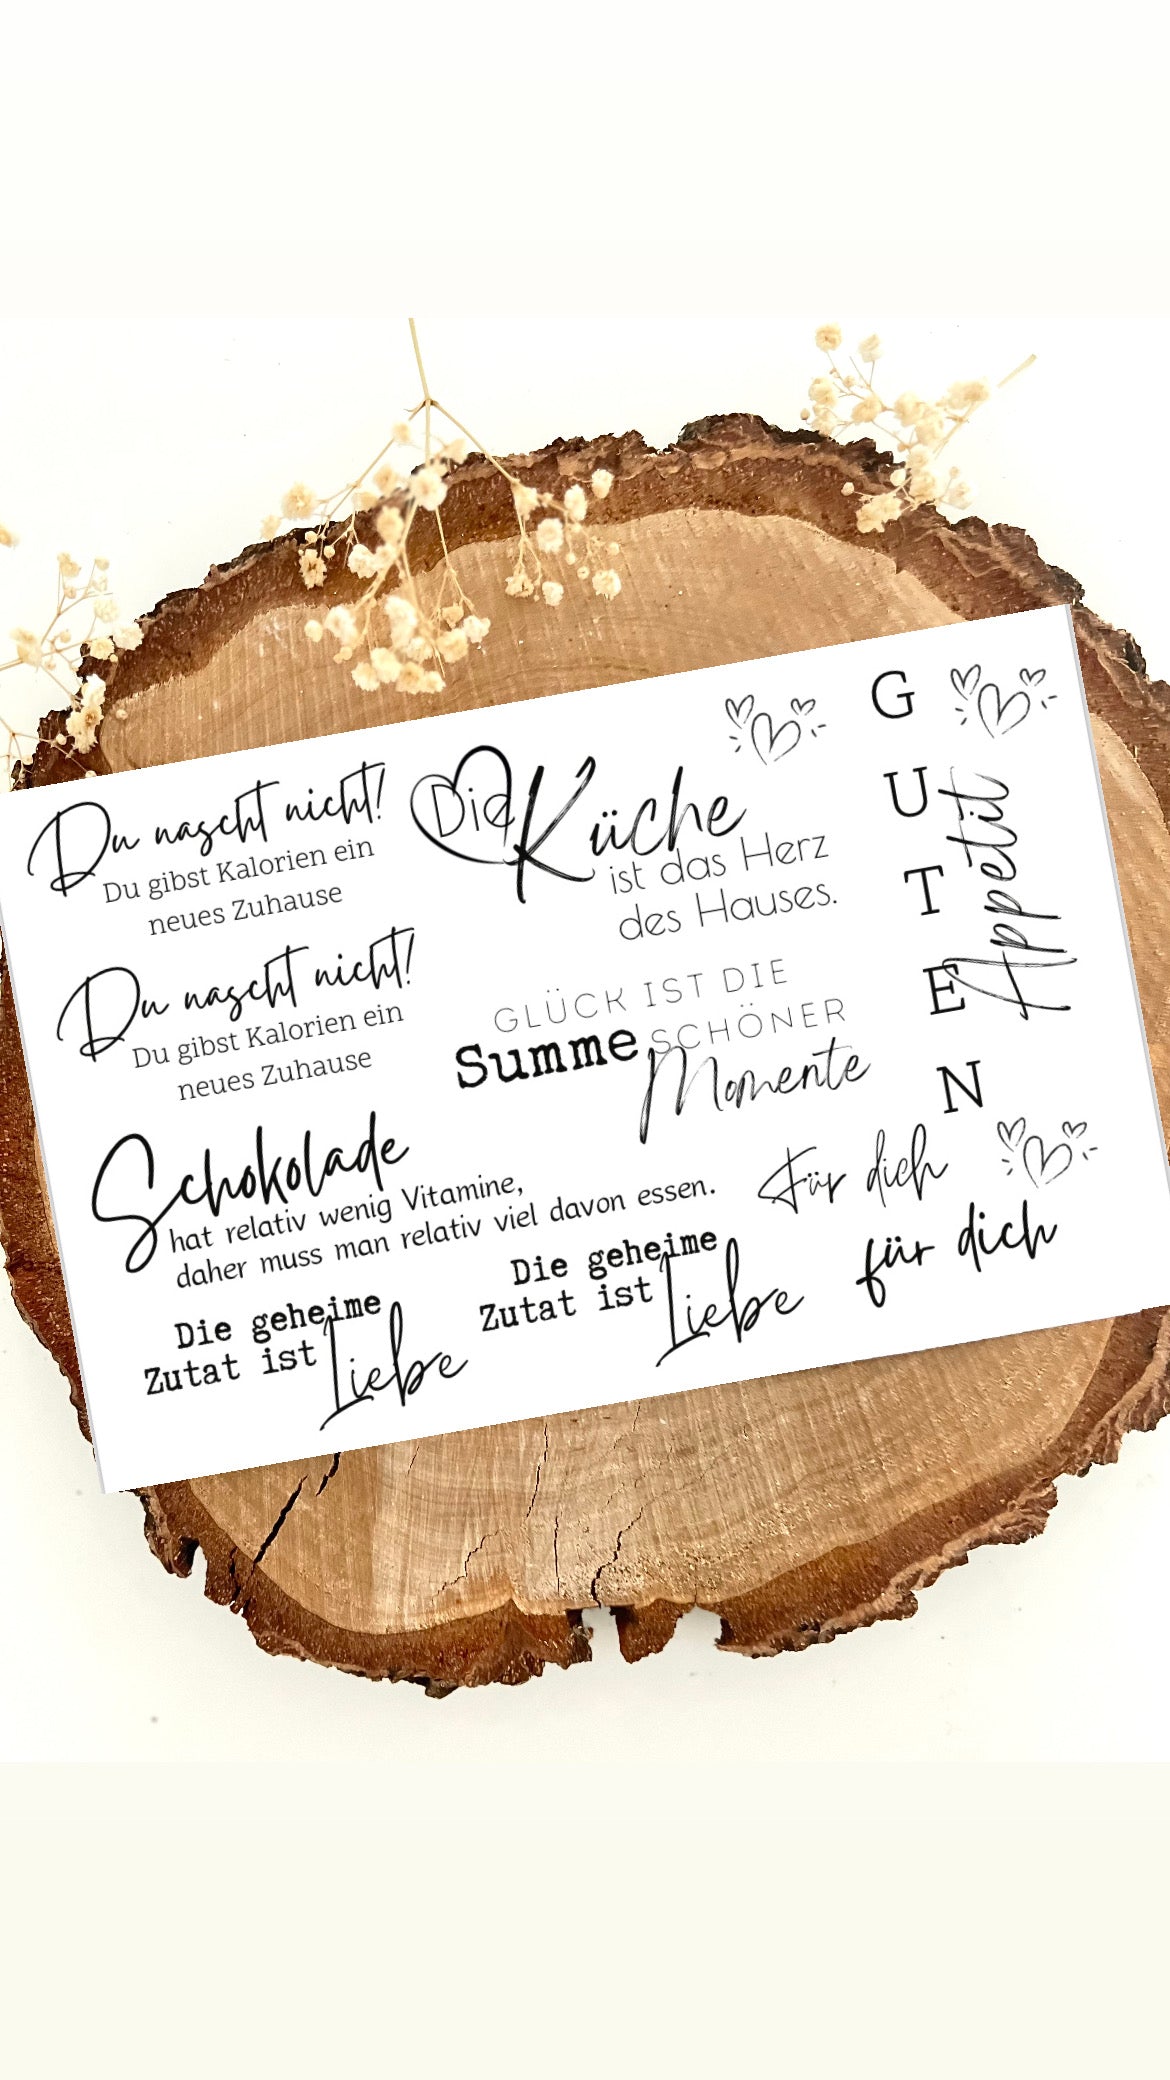 Du nascht nicht!
Du gibst Kalorien ein
neues Zuhause
Du nascht nicht!
Du gibst Kalorien ein
neues Zuhause
Schokolade
hat relativ wenig Vitamine,
daher muss man relativ viel davon essen.
Die geheime
Zutat ist Liebe
Die geheime
Zutat ist Liebe
Die Küche
ist das Herz
des Hauses.
GLÜCK IST DIE
Summe SCHÖNER
Momente
GUTEN
Appétit
Für dich
für dich